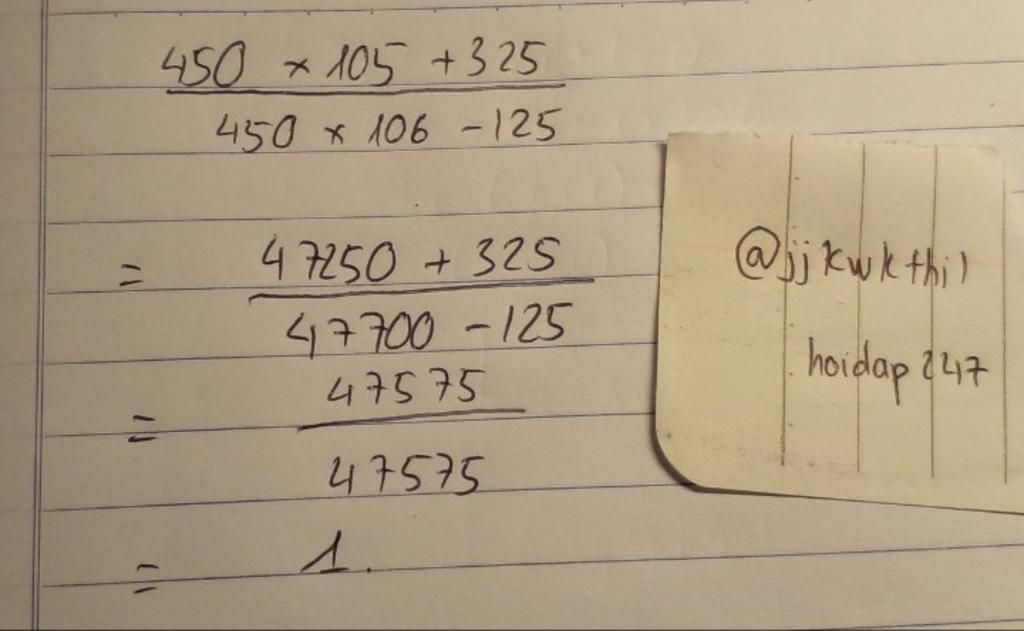 450 × 105 + 325
450 × 106 - 125
= 47250 + 325
47700 - 125
= 47575
47575
= 1.
@jjkwkthil
hoidap247